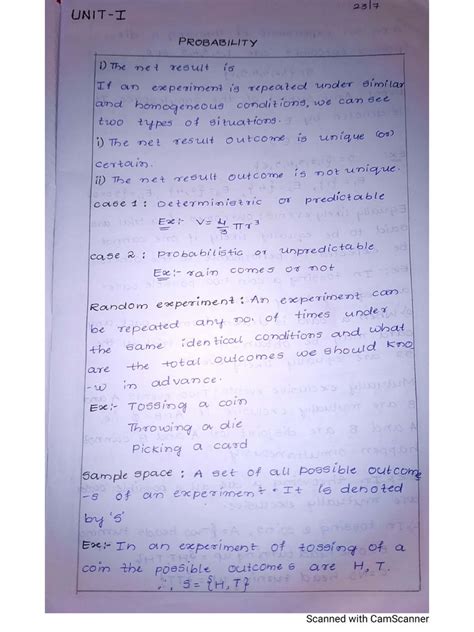 23/7
UNIT-I
PROBABILITY
1) The net result is
If an experiment is repeated under similar
and homogeneous conditions, we can see
two types of situations.
i) The net result outcome is unique (or)
certain.
ii) The net result outcome is not unique.
case 1 : Deterministric or predictable
Ex:- V= 4/3 πr³
case 2 : Probabilistic or unpredictable
Ex:- rain comes or not
Random experiment : An experiment can
be repeated any no. of times under
the same identical conditions and what
are the total outcomes we should kno
-w in advance.
Ex:- Tossing a coin
Throwing a die
Picking a card
Sample space : A set of all possible outcome
-s of an experiment. It is denoted
by 's'
Ex:- In an experiment of tossing of a
coin the possible outcomes are H, T.
∴ S = {H, T}
Scanned with CamScanner